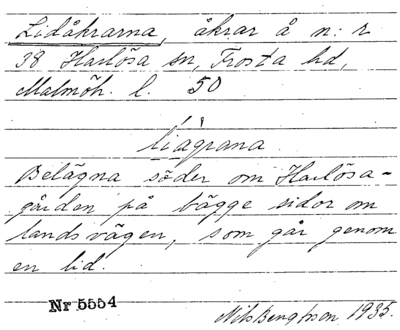 Lidåkrarna, åkrar å n:r
38 Harlösa sn, Frosta hd,
Malmöh. l. 50
liagrana
Belägna söder om Harlösa-
gården på bägge sidor om
landsvägen, som går genom
en lid.
Nr 5554 Nils Bengtson 1935.